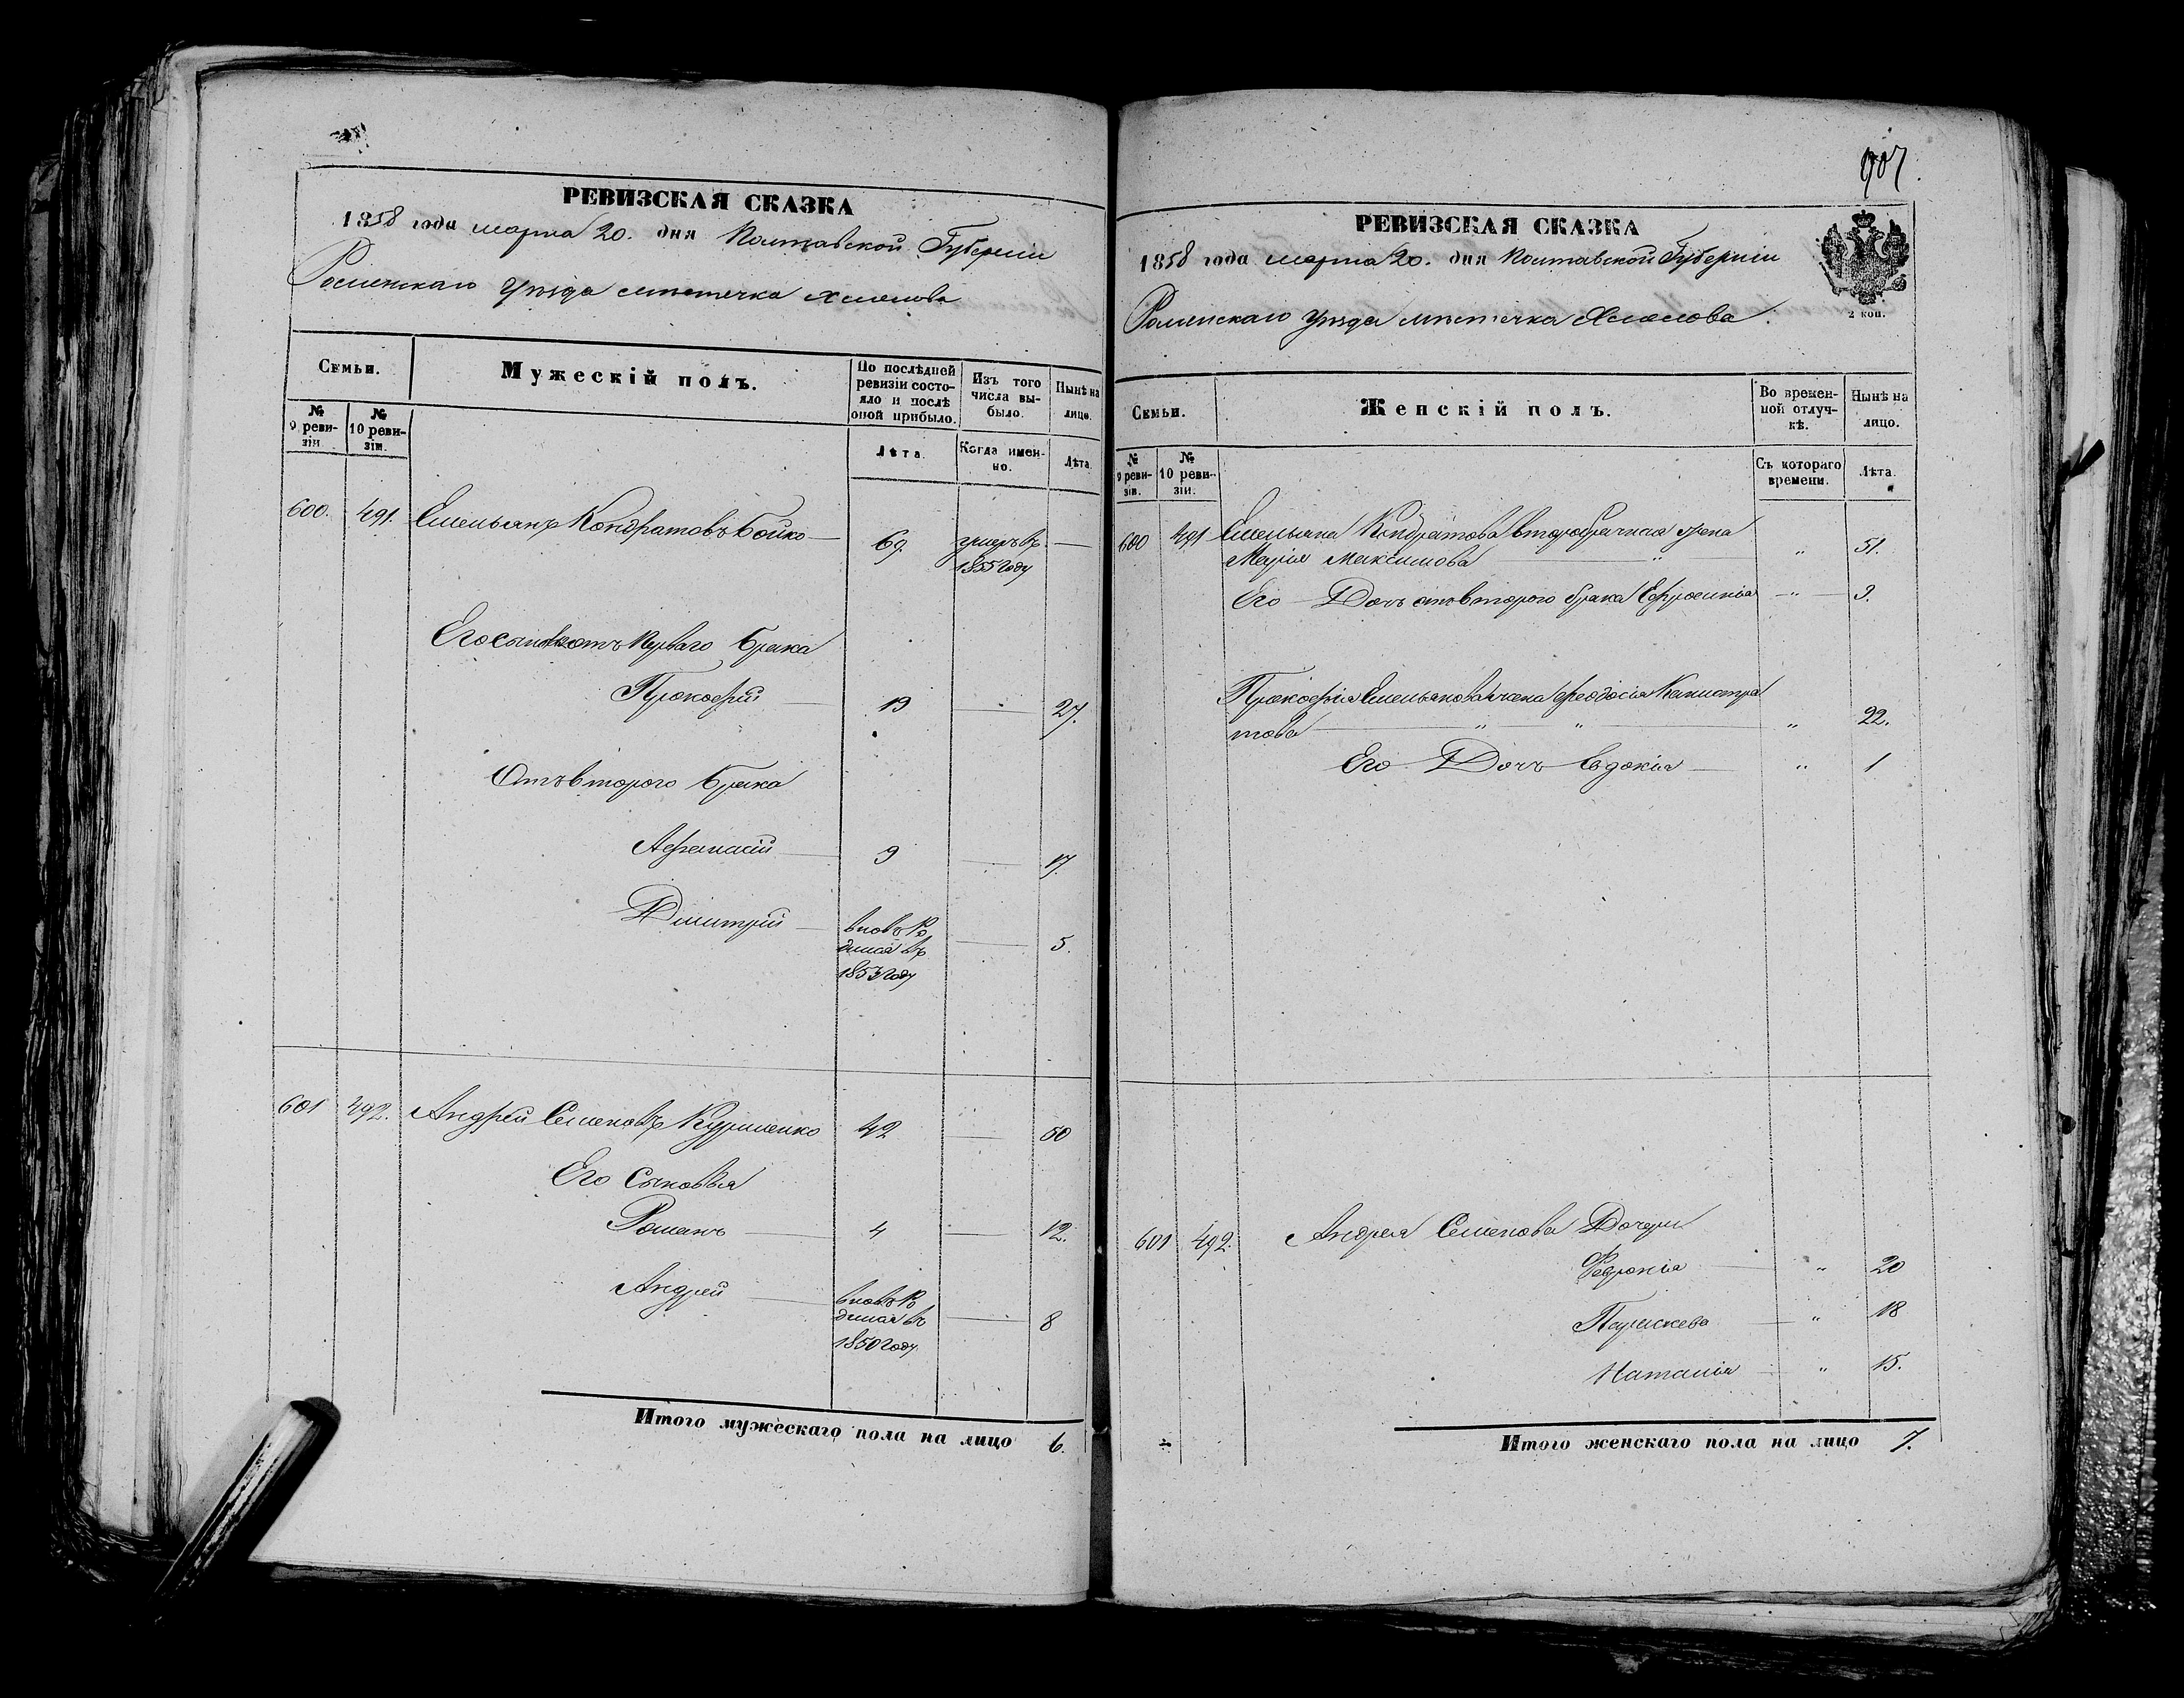 РЕВИЗСКАЯ СКАЗКА
1858 года марта 20. дня Полтавской Губерніи
Роменскаго Уѣзда мѣстечка Хмелова
Семьи.
Мужескій полъ.
По послѣдней ревизіи состояло и послѣ оной прибыло.
Изъ того числа выбыло.
Нынѣ на лицо.
№ 9 ревизіи
№ 10 ревизіи.
Лѣта.
Когда именно.
Лѣта.
600. 491. Емельянъ Кондратовъ Бойко 69. умеръ въ 1855 году
Его сыновья отъ перваго брака
Прокофій 19 27.
Отъ второго брака
Афанасій 9 17.
Дмитрій вновь родился въ 1853 году 5.
601 492. Андрей Семеновъ Курименко 42 50
Его Сыновья
Романъ 4 12.
Андрей вновь родился въ 1850 году 8
Итого мужескаго пола на лицо 6.
907
РЕВИЗСКАЯ СКАЗКА
1858 года марта 20. дня Полтавской Губерніи
Роменскаго Уѣзда мѣстечка Хмелова.
2 коп.
Семьи.
Женскій полъ.
Во временной отлучкѣ.
Нынѣ на лицо.
№ 9 ревизіи.
№ 10 ревизіи.
Съ котораго времени.
Лѣта.
600 491 Емельяна Кондратова второбрачная жена
Марія Максимова " " 51.
Его Дочь отъ второго брака Ефросинья " 9.
Прокофія Емельянова жена Феодосія Калистра
това " " " 22.
Его Дочь Евдокія " 1
601 492. Андрея Семенова Дочери
Федронія " 20
Параскева " 18
Наталія " 15.
Итого женскаго пола на лицо 7.